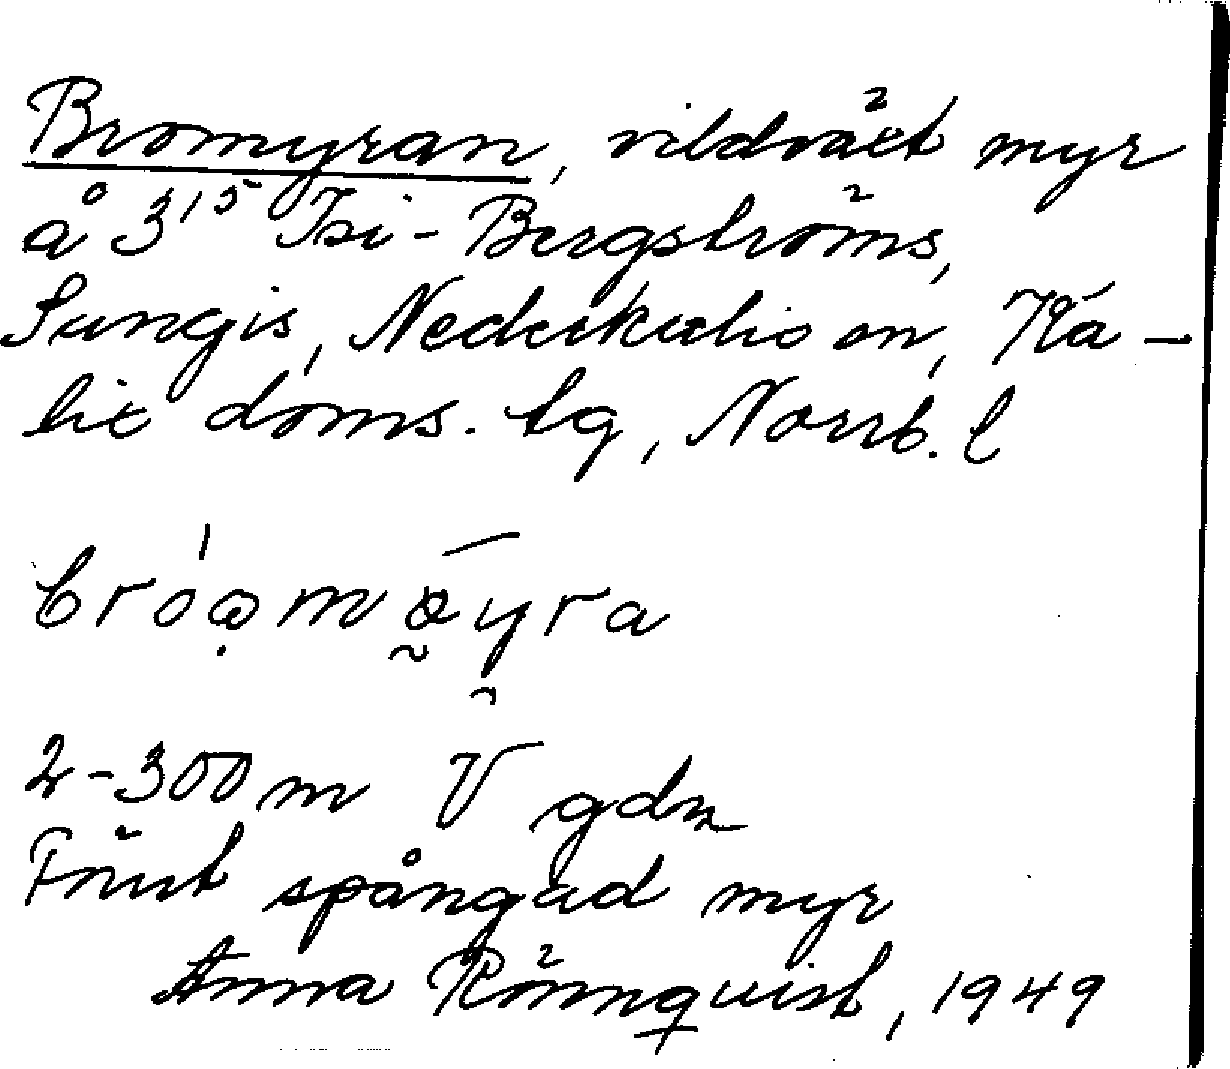 Bromyran, vildvåt myr
å 3¹⁵ Isi-Bergströms,
Sangis, Nederkalix sn, Ka-
lix doms. tg, Norrb. l
bróam y̱ra
2-300 m V gdn
Förut spångad myr
Anna Rönnquist, 1949